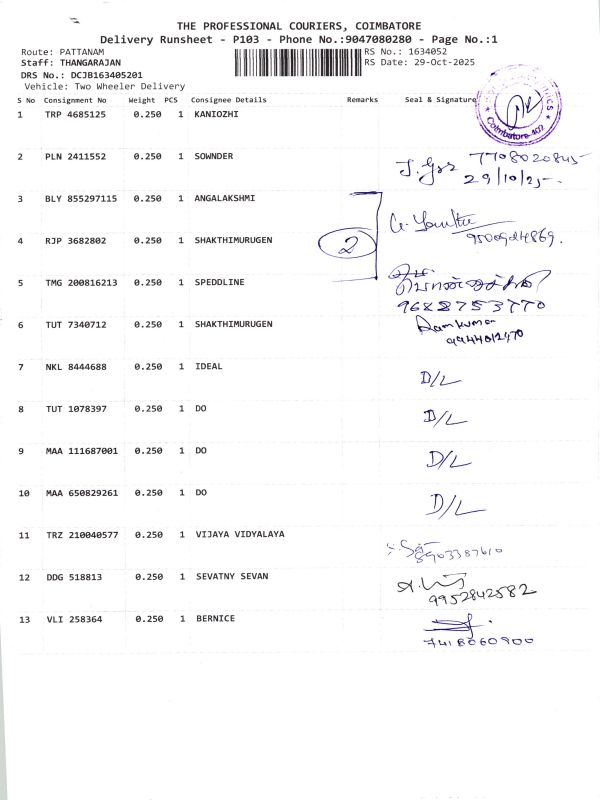 THE PROFESSIONAL COURIERS, COIMBATORE
Delivery Runsheet - P103 - Phone No.:9047080280 - Page No.:1
Route: PATTANAM RS No.: 1634052
Staff: THANGARAJAN RS Date: 29-Oct-2025
DRS No.: DCJB163405201
Vehicle: Two Wheeler Delivery
S No Consignment No Weight PCS Consignee Details Remarks Seal & Signature
Coimbatore-402
1 TRP 4685125 0.250 1 KANIOZHI
2 PLN 2411552 0.250 1 SOWNDER 7708020845
29/10/25
3 BLY 855297115 0.250 1 ANGALAKSHMI
4 RJP 3682802 0.250 1 SHAKTHIMURUGEN 2 9500924869.
5 TMG 200816213 0.250 1 SPEDDLINE
9628753770
6 TUT 7340712 0.250 1 SHAKTHIMURUGEN Ramkumar
7 NKL 8444688 0.250 1 IDEAL D/L
8 TUT 1078397 0.250 1 DO D/L
9 MAA 111687001 0.250 1 DO D/L
10 MAA 650829261 0.250 1 DO D/L
11 TRZ 210040577 0.250 1 VIJAYA VIDYALAYA
12 DDG 518813 0.250 1 SEVATNY SEVAN
9952842582
13 VLI 258364 0.250 1 BERNICE
7418060900